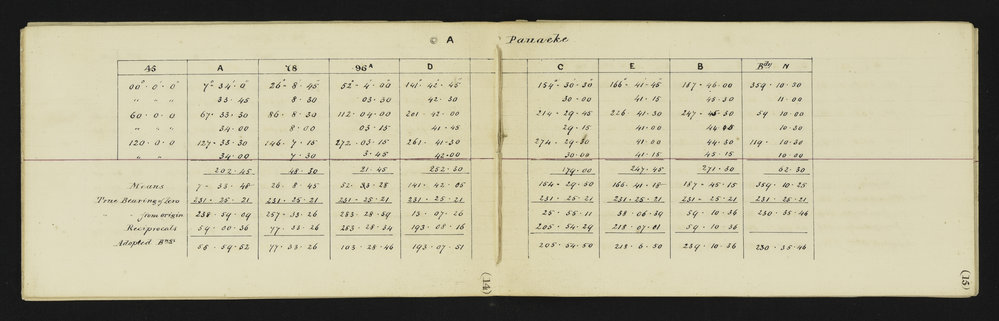 ⊙ A Panaeke
45 A 18 96ᴬ D C E B Rdy N
00°·0'·0" 7°·34'·0" 26°·8'·45" 52°·4'·00" 141°·42'·45" 154°·30'·30" 166°·41'·45" 187°·46'·00" 359·10·30
" " " 33·45 8·30 03·30 42·30 30·00 41·15 45·30 11·00
60·0·0 67·33·30 86·8·30 112·04·00 201·42·00 214·29·45 226·41·30 247·45·30 59·10·00
" " " 34·00 8·00 03·15 41·45 29·15 41·00 44·45 10·30
120·0·0 127·33·30 146·7·15 272·03·15 261·41·30 274·29·30 41·00 44·30 119·10·30
" " 34·00 7·30 3·45 42·00 30·00 41·15 45·15 10·00
202·45 48·30 21·45 252·30 179·00 247·45 271·30 62·30
Means 7·33·48 26·8·45 52·33·28 141·42·05 154·29·50 166·41·18 187·45·15 359·10·25
True Bearing of Zero 231·25·21 231·25·21 231·25·21 231·25·21 231·25·21 231·25·21 231·25·21 231·25·21
" from origin 238·59·09 257·33·26 283·28·59 13·07·26 25·55·11 38·06·39 59·10·36 230·35·46
Reciprocals 59·00·36 77·33·26 283·28·34 193·08·16 205·54·29 218·07·01 59·10·36
Adopted Bngs 58·59·52 77·33·26 103·28·46 193·07·51 205·54·50 218·6·50 239·10·36 230·35·46
(14) (15)